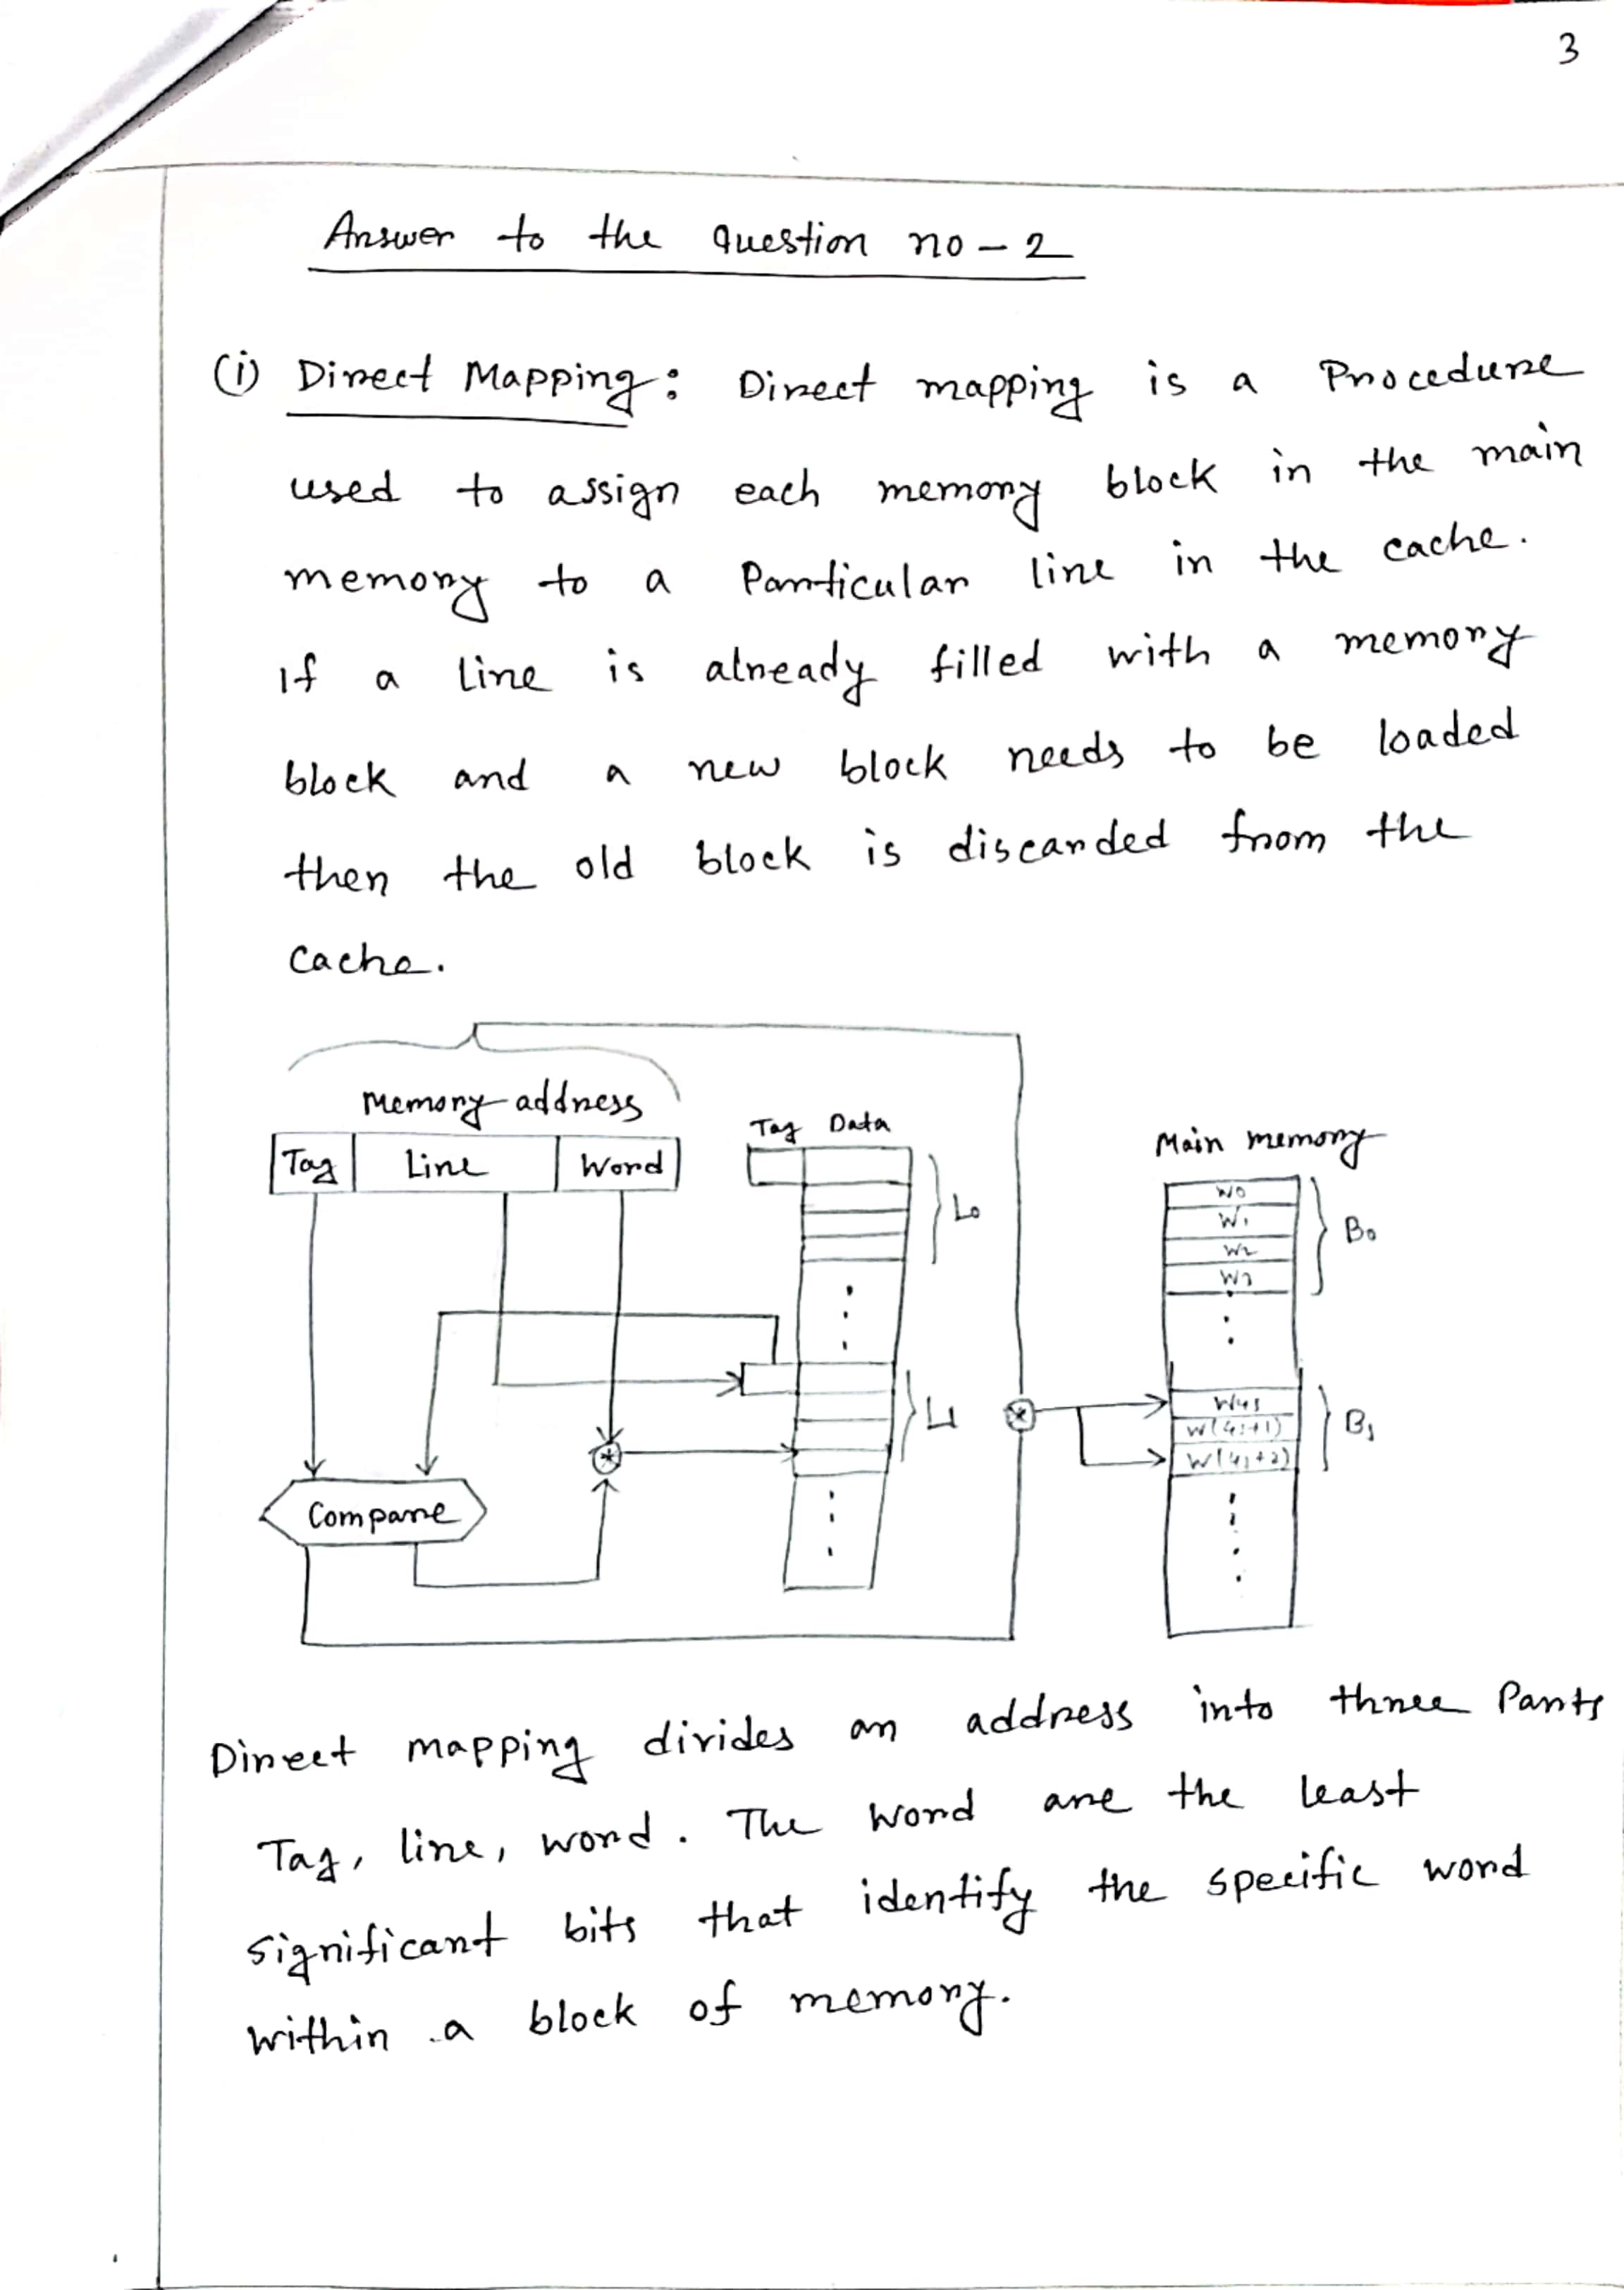 3
Answer to the question no - 2
(i) Direct Mapping: Direct mapping is a Procedure
used to assign each memory block in the main
memory to a Particular line in the cache.
If a line is already filled with a memory
block and a new block needs to be loaded
then the old block is discarded from the
Cache.
Memory address
Tag Line Word
Tag Data
Main memory
L0
W0
W1
W2
W3
B0
Compare
W(4j+1)
W(4j+2)
Direct mapping divides an address into three Parts
Tag, line, word. The word are the least
significant bits that identify the specific word
within a block of memory.